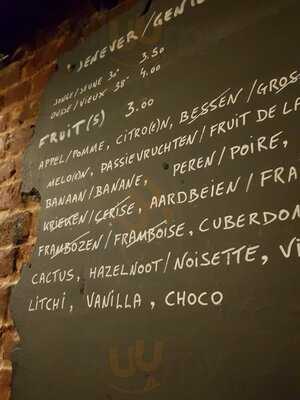 JENEVER / GENI
JONGE / JEUNE 30° 3.50
OUDE / VIEUX 38° 4.00
FRUIT(S) 3.00
APPEL / POMME, CITRO(E)N, BESSEN / GROS
MELO(E)N, PASSIEVRUCHTEN / FRUIT DE LA
BANAAN / BANANE, PEREN / POIRE,
KRIEKEN / CERISE, AARDBEIEN / FRA
FRAMBOZEN / FRAMBOISE, CUBERDON
CACTUS, HAZELNOOT / NOISETTE, VI
LITCHI, VANILLA, CHOCO